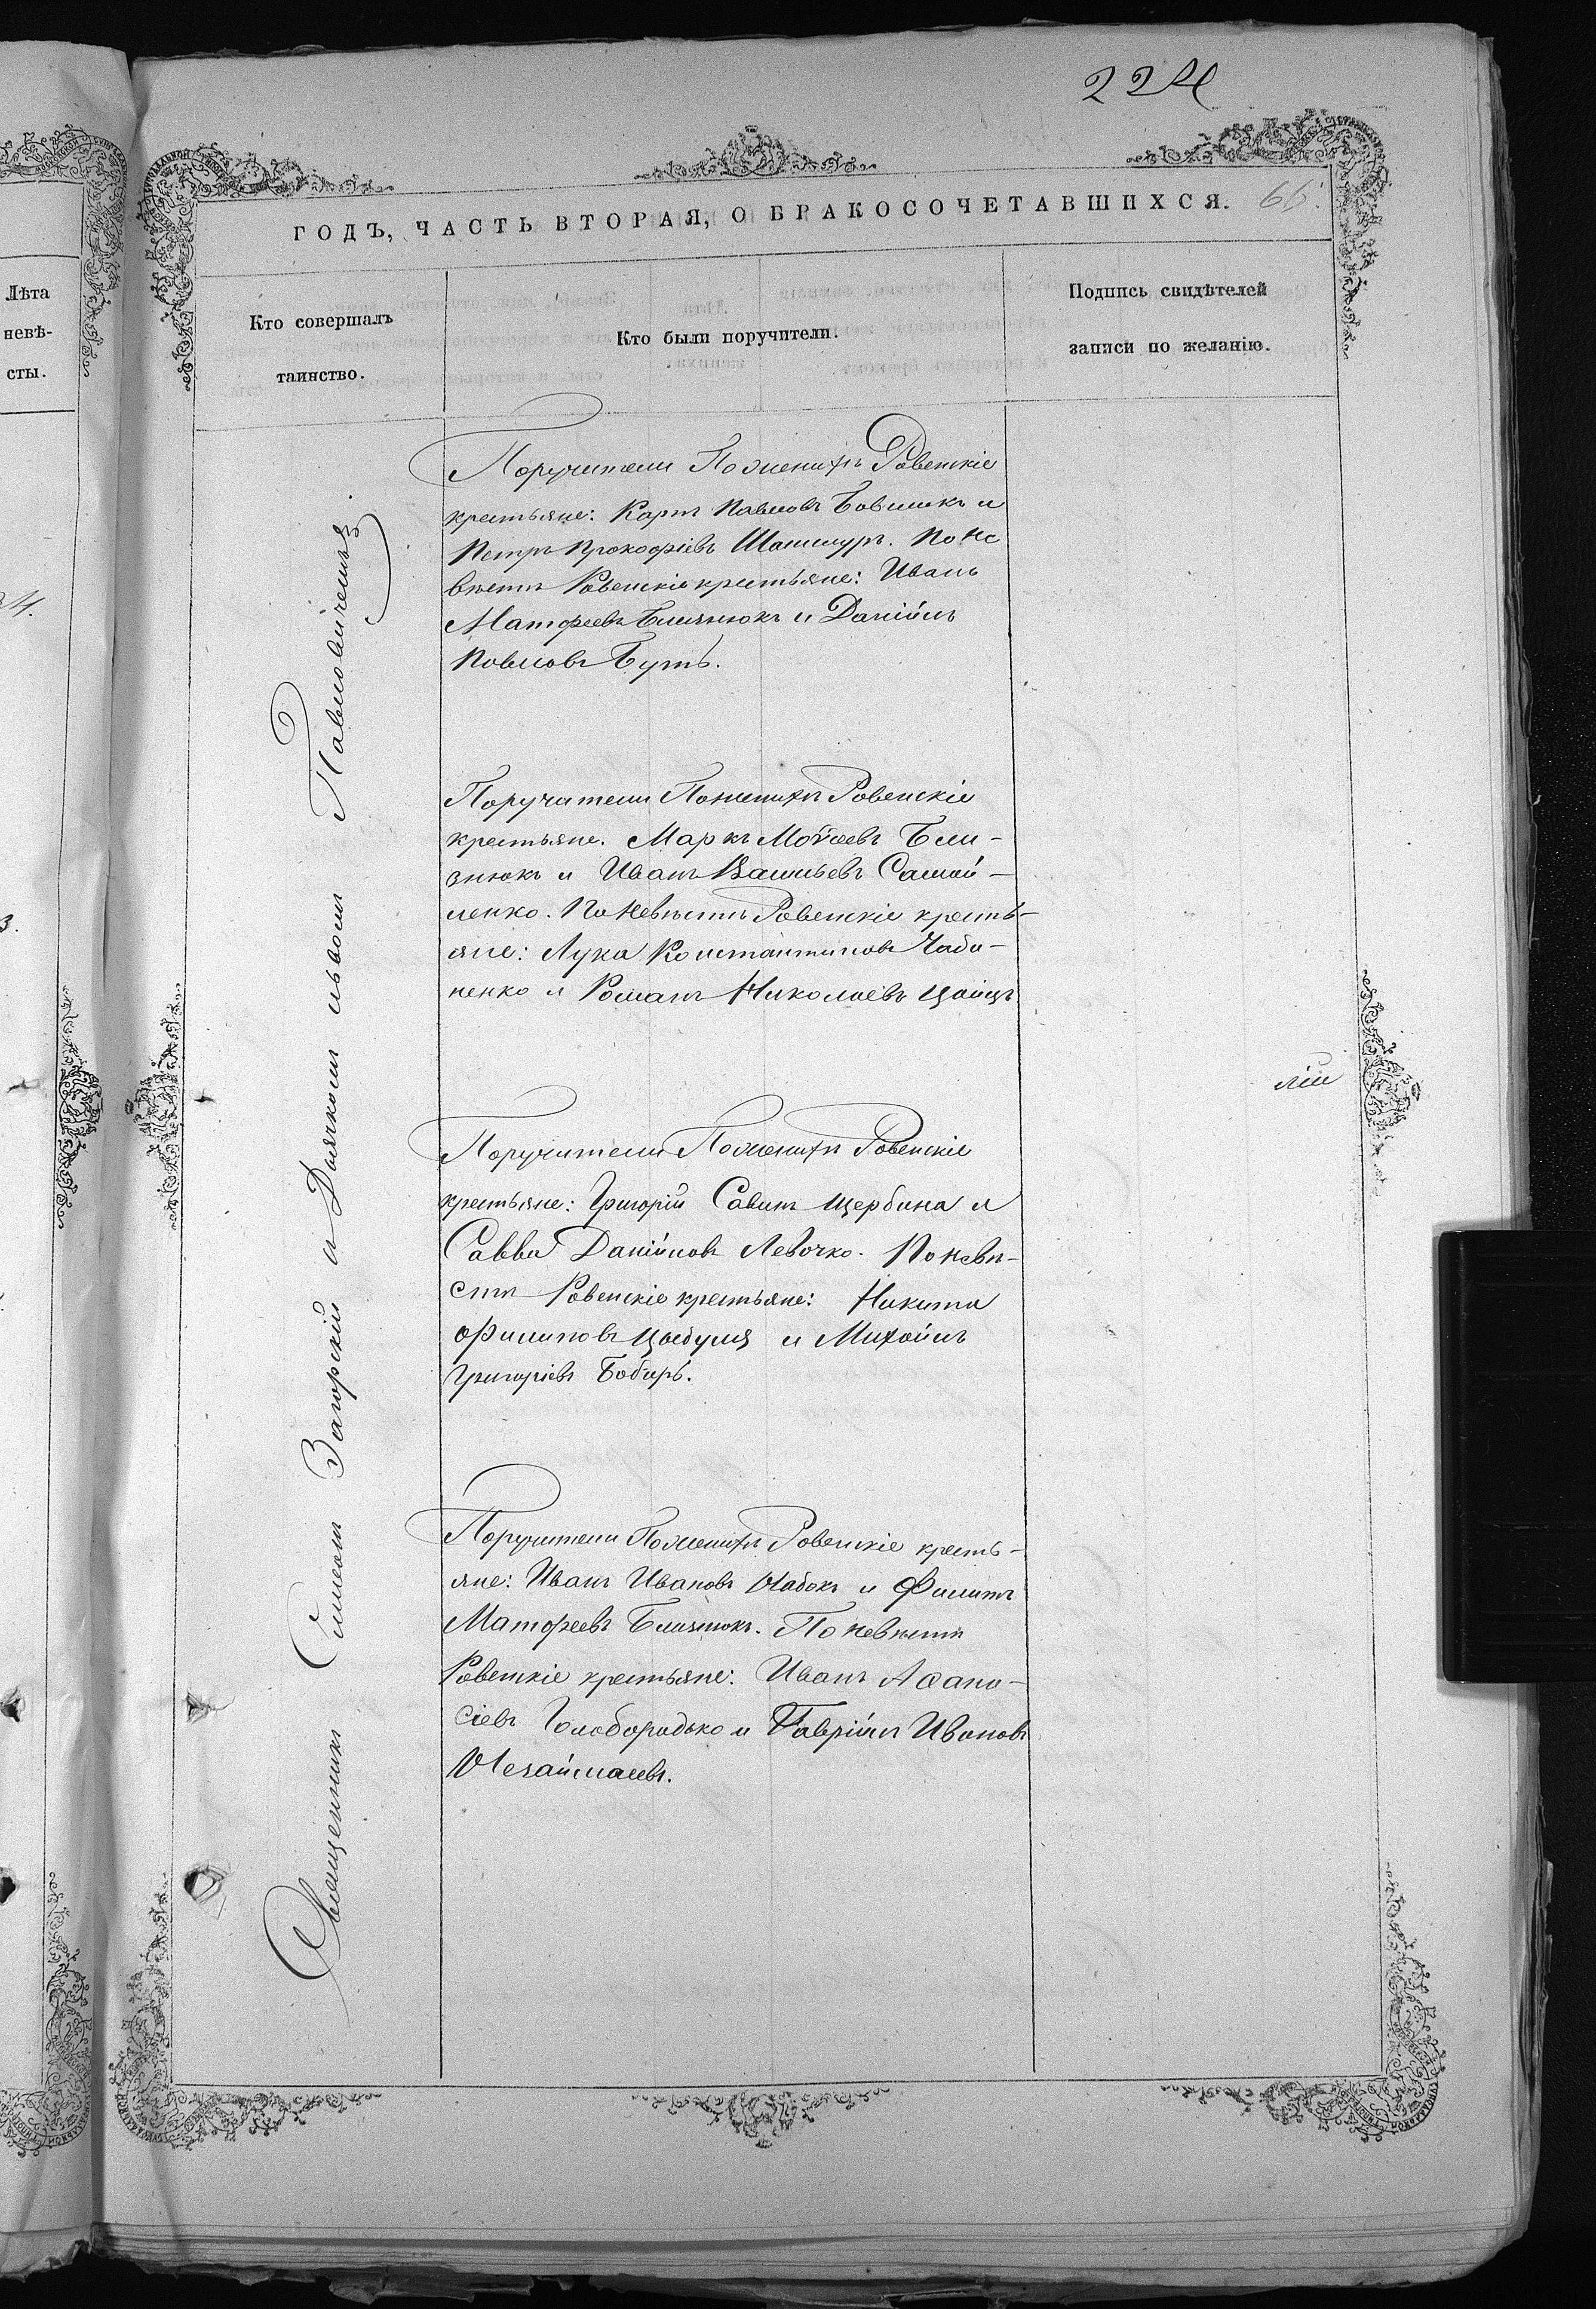 224
ГОДЪ, ЧАСТЬ ВТОРАЯ, О БРАКОСОЧЕТАВШИХСЯ.
66.
Лѣта
невѣ-
сты.
Кто совершалъ
таинство.
Кто были поручители.
Подпись свидѣтелей
записи по желанію.
Священникъ Симеонъ Загорскій и Дьячкомъ Львомъ Павловичемъ
Поручители По женихѣ Ровенскіе
крестьяне: Карпъ Павловъ Бовшикъ и
Петръ Прокофіевъ Шаншуръ. По не
вѣстѣ Ровенскіе крестьяне: Иванъ
Матфеевъ Близнюкъ и Даніилъ
Павловъ Бутъ.
Поручители По женихѣ Ровенскіе
крестьяне. Маркъ Моѵсеевъ Бли-
знюкъ и Иванъ Васильевъ Самой-
ленко. По невѣстѣ Ровенскіе кресть-
яне: Лука Константиновъ Чаба-
ненко и Романъ Николаевъ
Поручители По женихѣ Ровенскіе
крестьяне: Григорій Савинъ Щербина и
Савва Даніиловъ Левочко. По невѣ-
стѣ Ровенскіе крестьяне: Никита
Филиповъ Цыбуля и Михаилъ
Григоріевъ Бобырь.
Поручители По женихѣ Ровенскіе кресть-
яне: Иванъ Ивановъ Набокъ и Филипъ
Матфеевъ Близнюкъ. По невѣстѣ
Ровенскіе крестьяне: Иванъ Афана-
сіевъ Голобородько и Гавріилъ Ивановъ
Незаймаевъ.